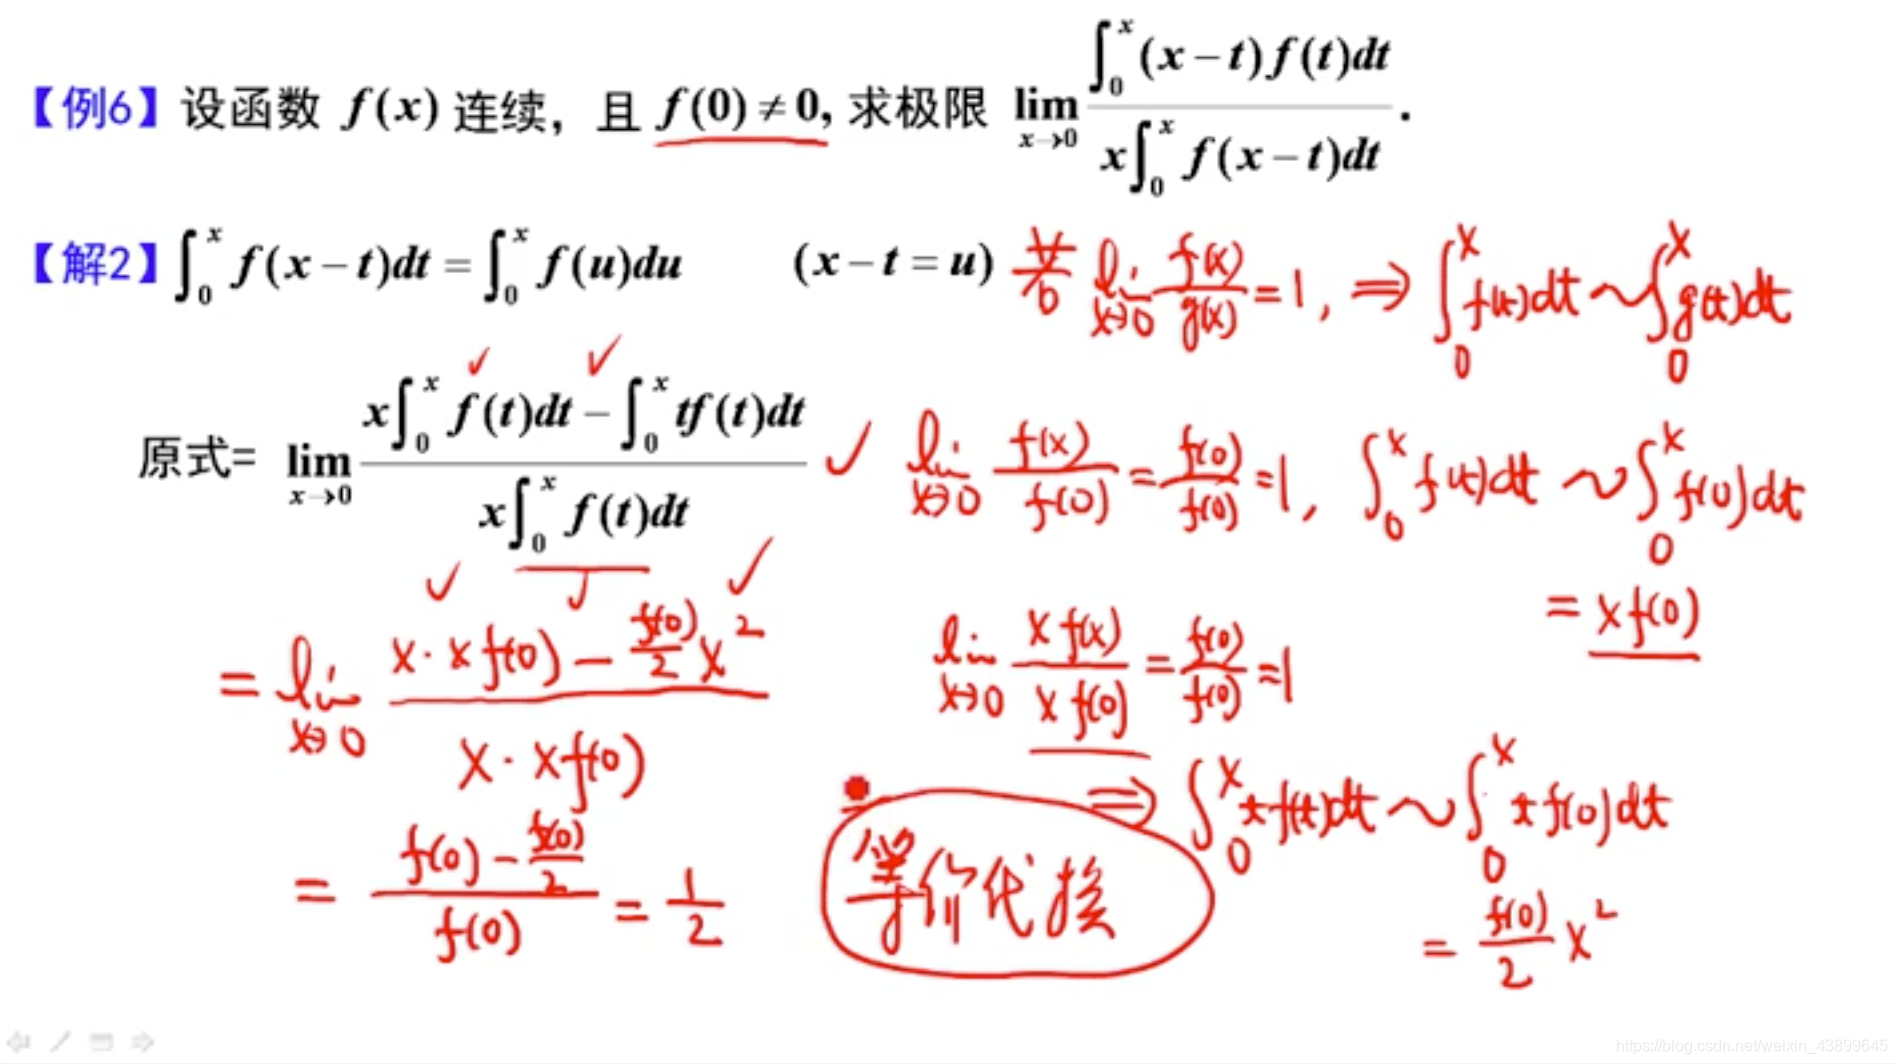 【例6】设函数 f(x) 连续，且 f(0) ≠ 0, 求极限 lim_{x→0} \frac{∫_0^x (x−t)f(t)dt}{x∫_0^x f(x−t)dt}.
【解2】∫_0^x f(x−t)dt = ∫_0^x f(u)du (x−t=u)
lim_{x→0} \frac{f(x)}{g(x)} = 1, ⇒ ∫_0^x f(t)dt ~ ∫_0^x g(t)dt
原式= lim_{x→0} \frac{x∫_0^x f(t)dt − ∫_0^x tf(t)dt}{x∫_0^x f(t)dt}
lim_{x→0} \frac{f(x)}{f(0)} = \frac{f(0)}{f(0)} = 1, ∫_0^x f(t)dt ~ ∫_0^x f(0)dt
= xf(0)
= lim_{x→0} \frac{x·xf(0) − \frac{f(0)}{2}x^2}{x·xf(0)}
lim_{x→0} \frac{xf(x)}{xf(0)} = \frac{f(0)}{f(0)} = 1
⇒ ∫_0^x tf(t)dt ~ ∫_0^x tf(0)dt
= \frac{f(0)}{2}x^2
= \frac{f(0) − \frac{f(0)}{2}}{f(0)} = \frac{1}{2}
等价代换
https://blog.csdn.net/weixin_43899645